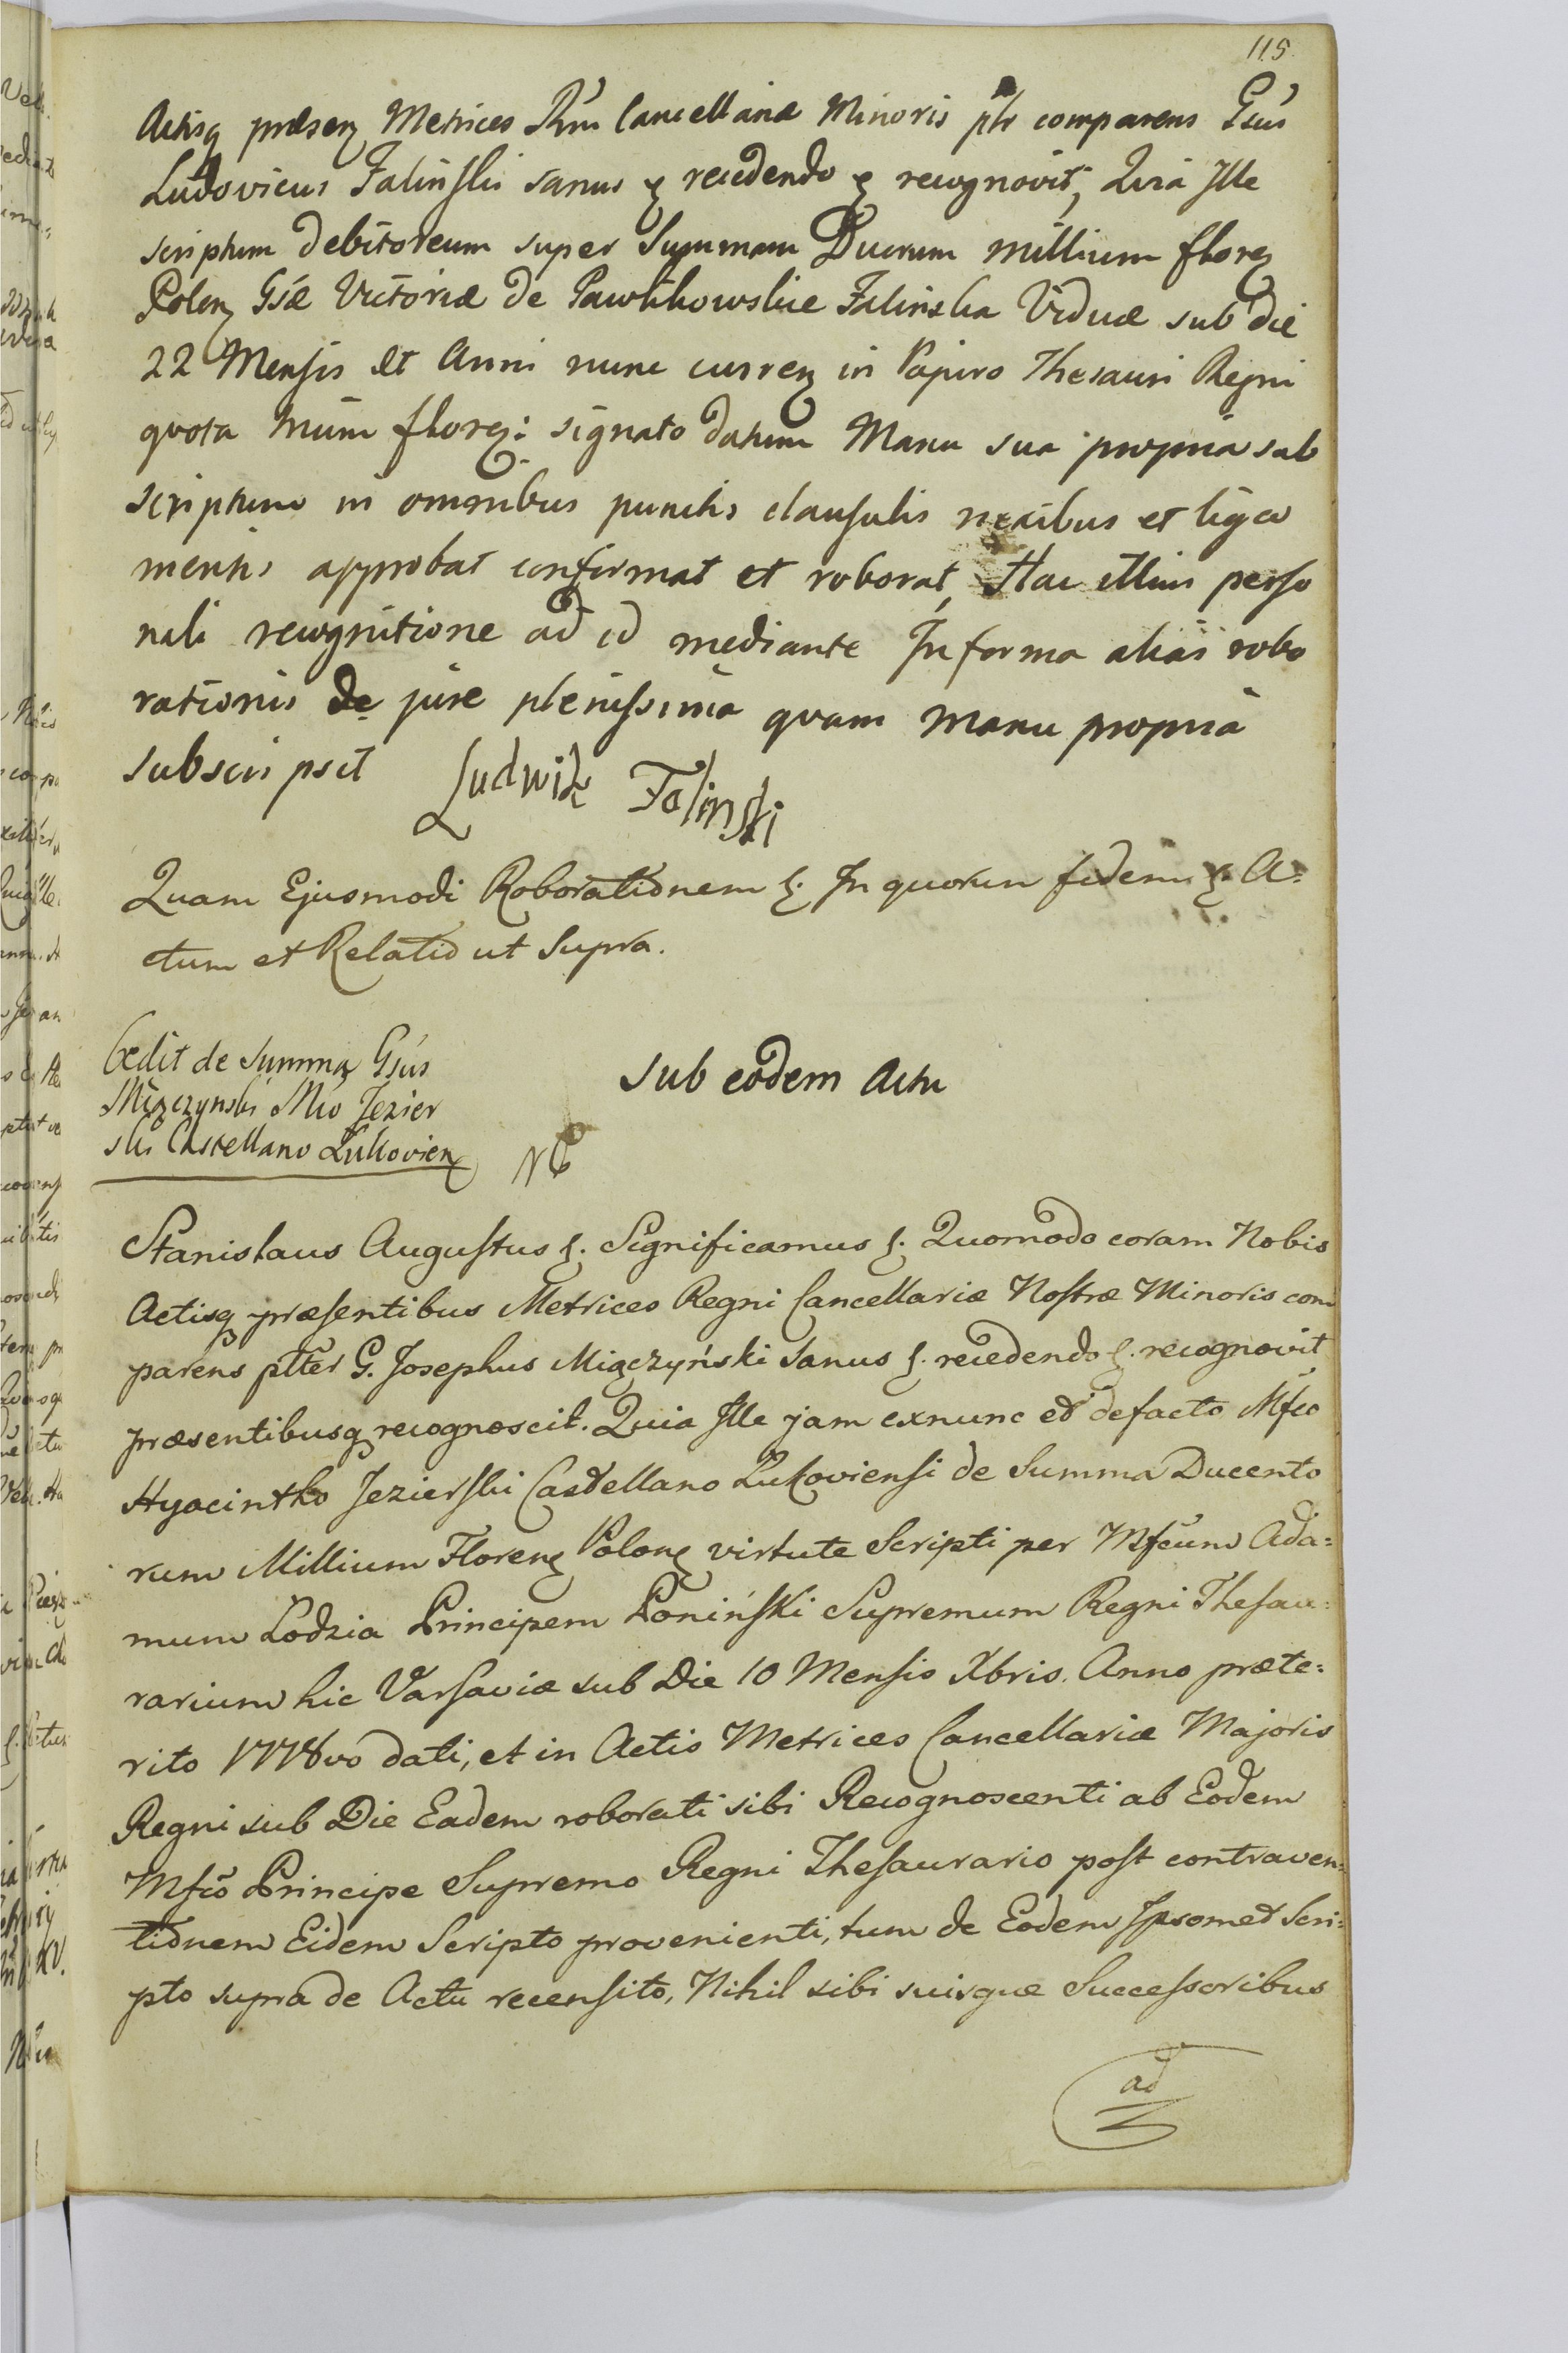 115.
Actisq præsenz Metrices Rni Cancellariæ Minoris pltr comparens Gsus
Ludovicus Falinski sanus ꝛ recedendo ꝛ recognovit, Quia Ille
scriptum debitoreum super Summam Duorum millium florenz
Polonz Gsæ Victoriæ de Pawlikowskie Falinska Viduæ sub die
22 Mensis et Anni nunc currenz in Papiro Thesauri Regni
quota num florenz: signato datum Manu sua propria sub
scriptum in omnibus punctis clausulis nexibus et liga
mentis approbat confirmat et roborat, Hac illius perso
nali recognitione ad id mediante In forma alias robo
rationis de jure plenissima quam manu propria
subscripsit Ludwik Falinski
Quam Ejusmodi Roborationem ꝛ. In quorum fidem ꝛ. A=
ctum et Relatio ut Supra.
Cedit de Summa Gsus
Miączynski Mco Jezier
ski Castellano Lukovienz
Sub eodem Actu
Stanislaus Augustus ꝛ. Significamus ꝛ. Quomodo coram Nobis
Actisq præsentibus Metrices Regni Cancellariæ Nostræ Minoris com
parens plter G. Josephus Miączyński Sanus ꝛ. recedendo ꝛ. recognovit
præsentibusq recognoscit. Quia Ille jam exnunc et defacto Mfco
Hyacintho Jezierski Castellano Lukoviensi de Summa Ducento
rum Millium Florenz Polonz virtute Scripti per Mfcum Ada=
mum Lodzia Principem Poniński Supremum Regni Thesau=
rarium hic Varsaviæ sub Die 10 Mensis Xbris. Anno præte=
rito 1778vo dati, et in Actis Metrices Cancellariæ Majoris
Regni sub Die Eadem roborati sibi Recognoscenti ab Eodem
Mfco Principe Supremo Regni Thesaurario post contraven=
tionem Eidem Scripto provenienti, tum de Eodem Ipsomet Scri=
pto supra de Actu recensito, Nihil sibi suisque Successoribus
ad